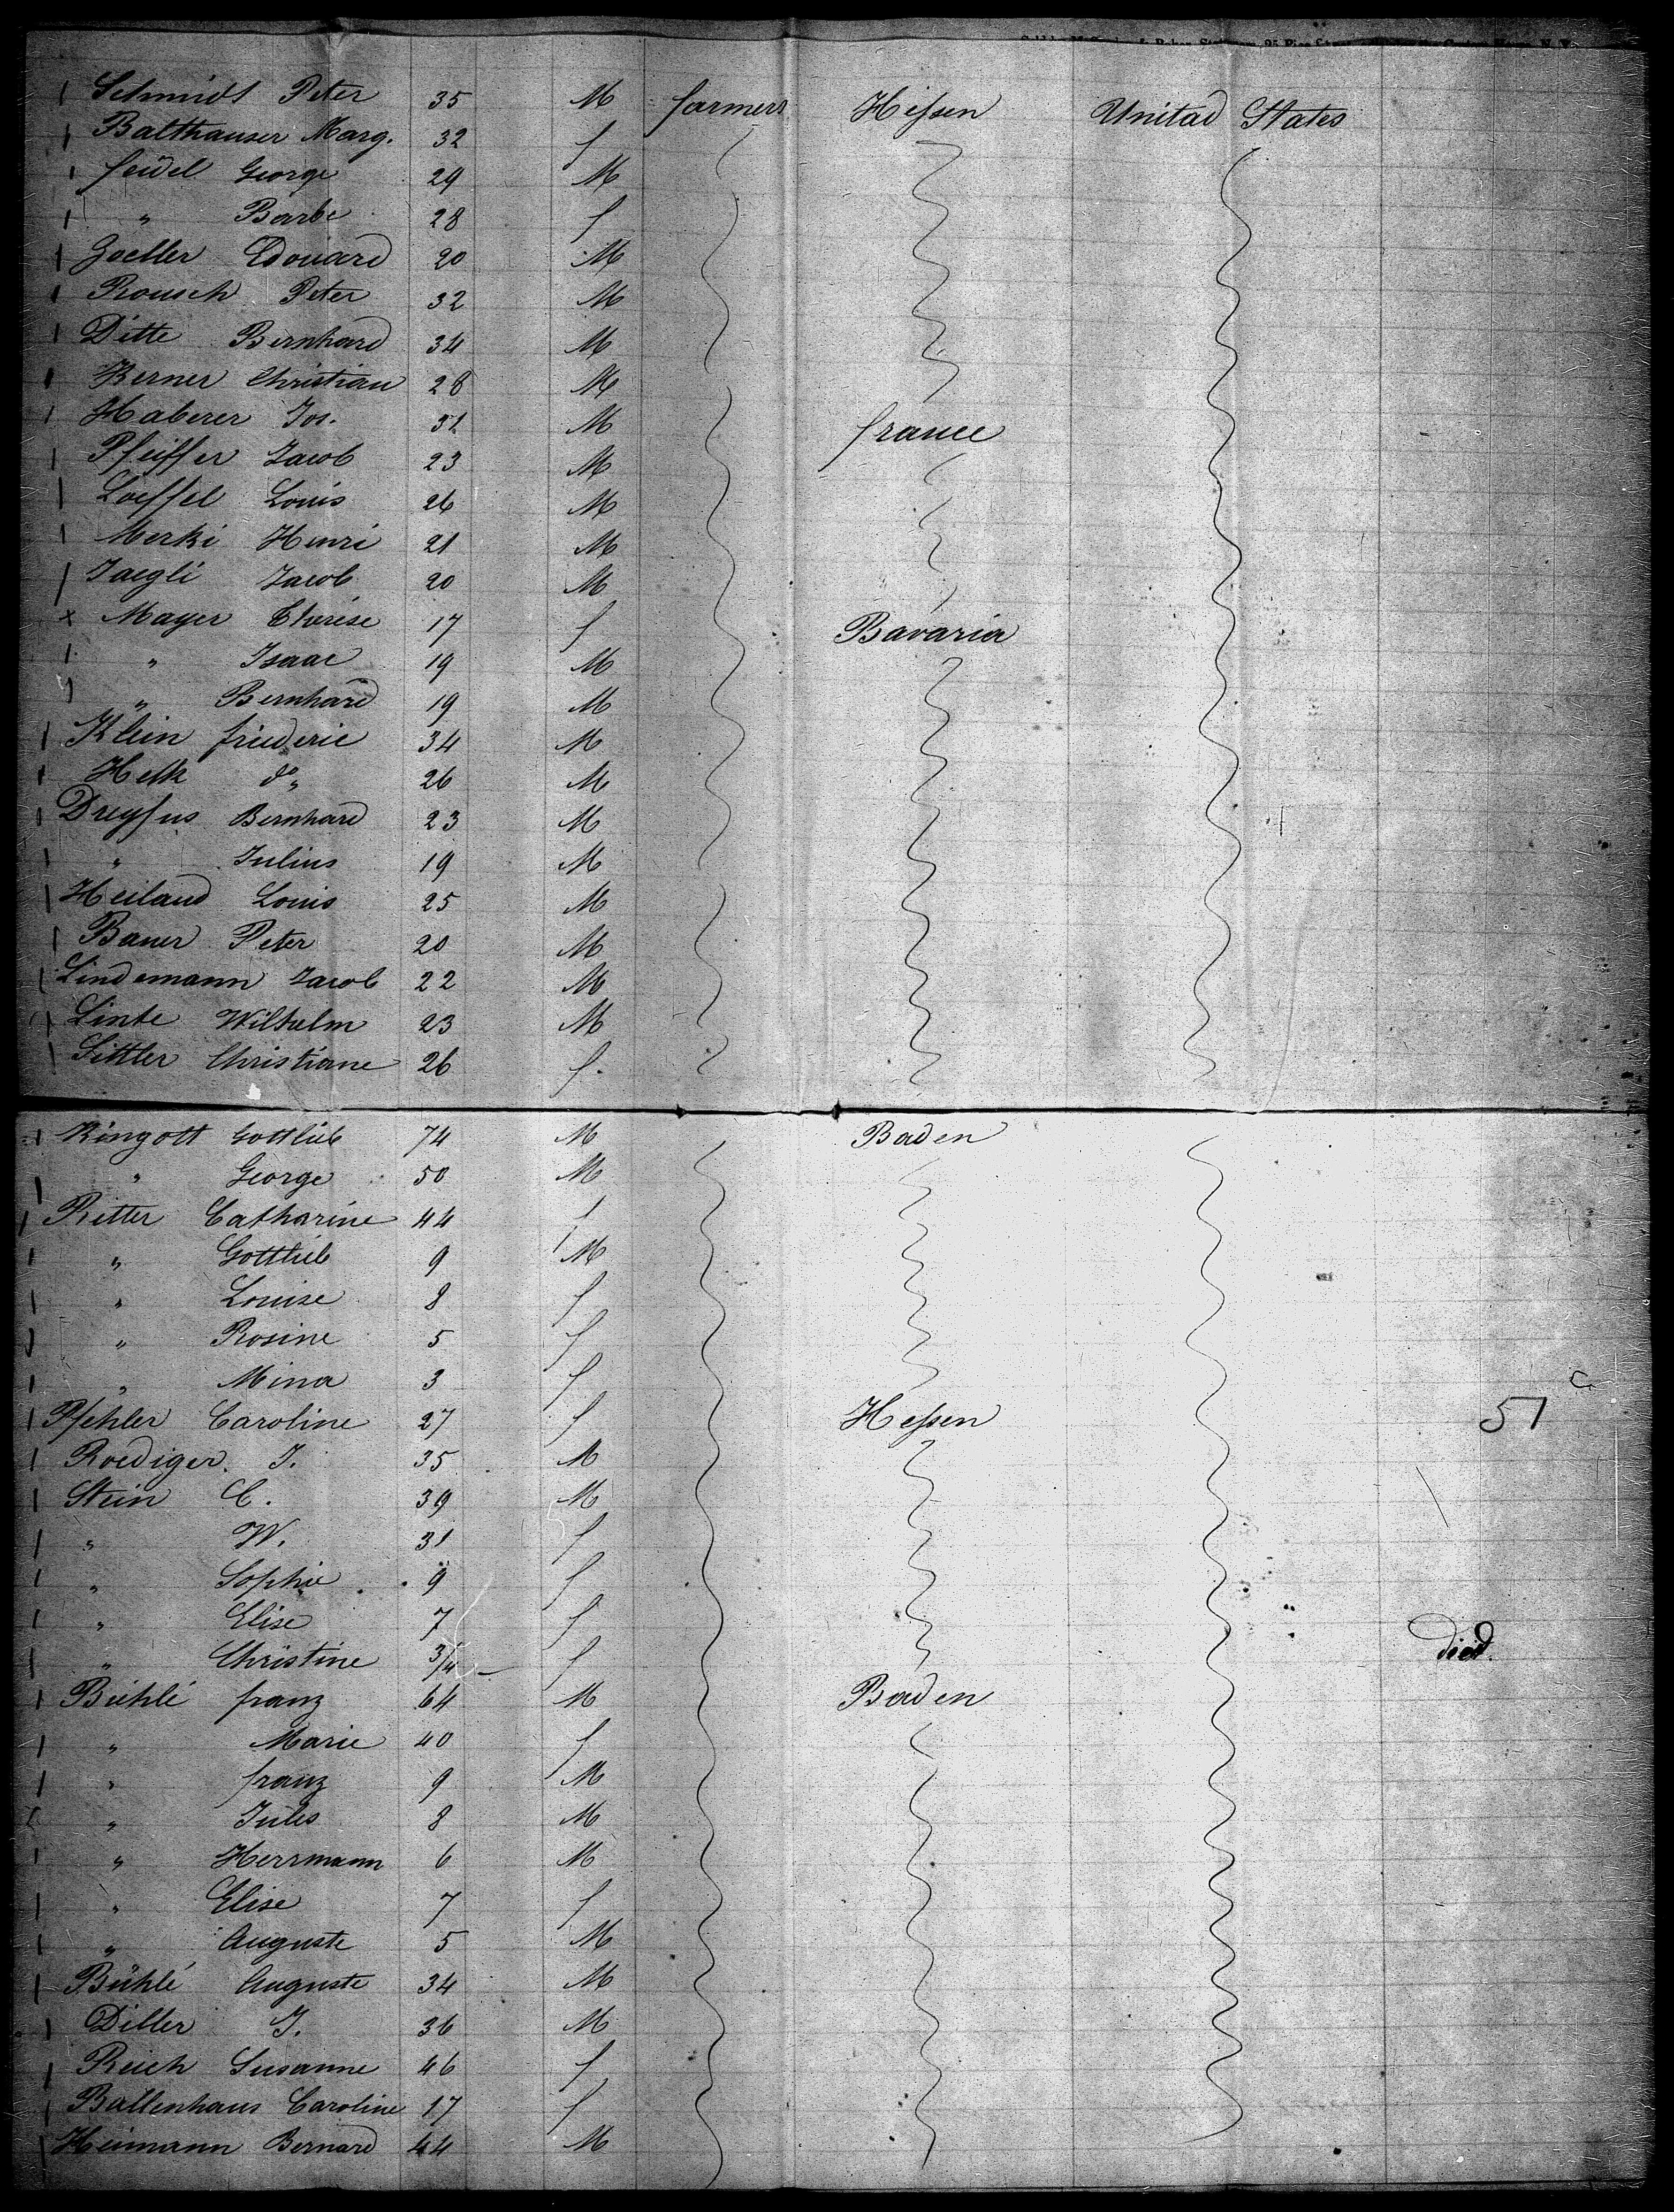 Schmidt Peter 35 M farmers Hessen Unitad States
Balthauser Marg. 32 f
feidel George 29 M
" Barbe 28 f
Goeller Edouard 20 M
Rousch Peter 32 M
Ditte Bernhard 34 M
Kerner Christian 28 M
Haberer Jos. 31 M france
Pfeiffer Jacob 23 M
Loeffel Louis 26 M
Merki Henri 21 M
Jaegli Jacob 20 M
x Mayer Therése 17 f Bavaria
" Isaac 19 M
" Bernhard 19 M
Klein friederic 34 M
Helk do 26 M
Dreyfus Bernhard 23 M
" Julius 19 M
Heiland Louis 25 M
Bauer Peter 20 M
Lindemann Jacob 22 M
Linte Wilhelm 23 M
Sittler Christiane 26 f.
Ringott Gottlieb 74 M Baden
" George 50 M
Ritter Catharine 44 f
" Gottlieb 9 M
" Louise 8 f
" Rosine 5 f
" Mina 3 f
Pfehler Caroline 27 f Hessen 51
Roediger J. 35 M
Stein C. 39 M
" W. 31 f
" Sophie 9 f
" Elise 7 f
" Christine 3/4 f died.
Bühlé franz 64 M Baden
" Marie 40 f
" franz 9 M
" Jules 8 M
" Herrmann 6 M
" Elise 7 f
" Auguste 5 M
Bühlé Auguste 34 M
Diller J. 36 M
Reich Susanne 46 f
Ballenhaus Caroline 17 f
Heimann Bernard 44 M